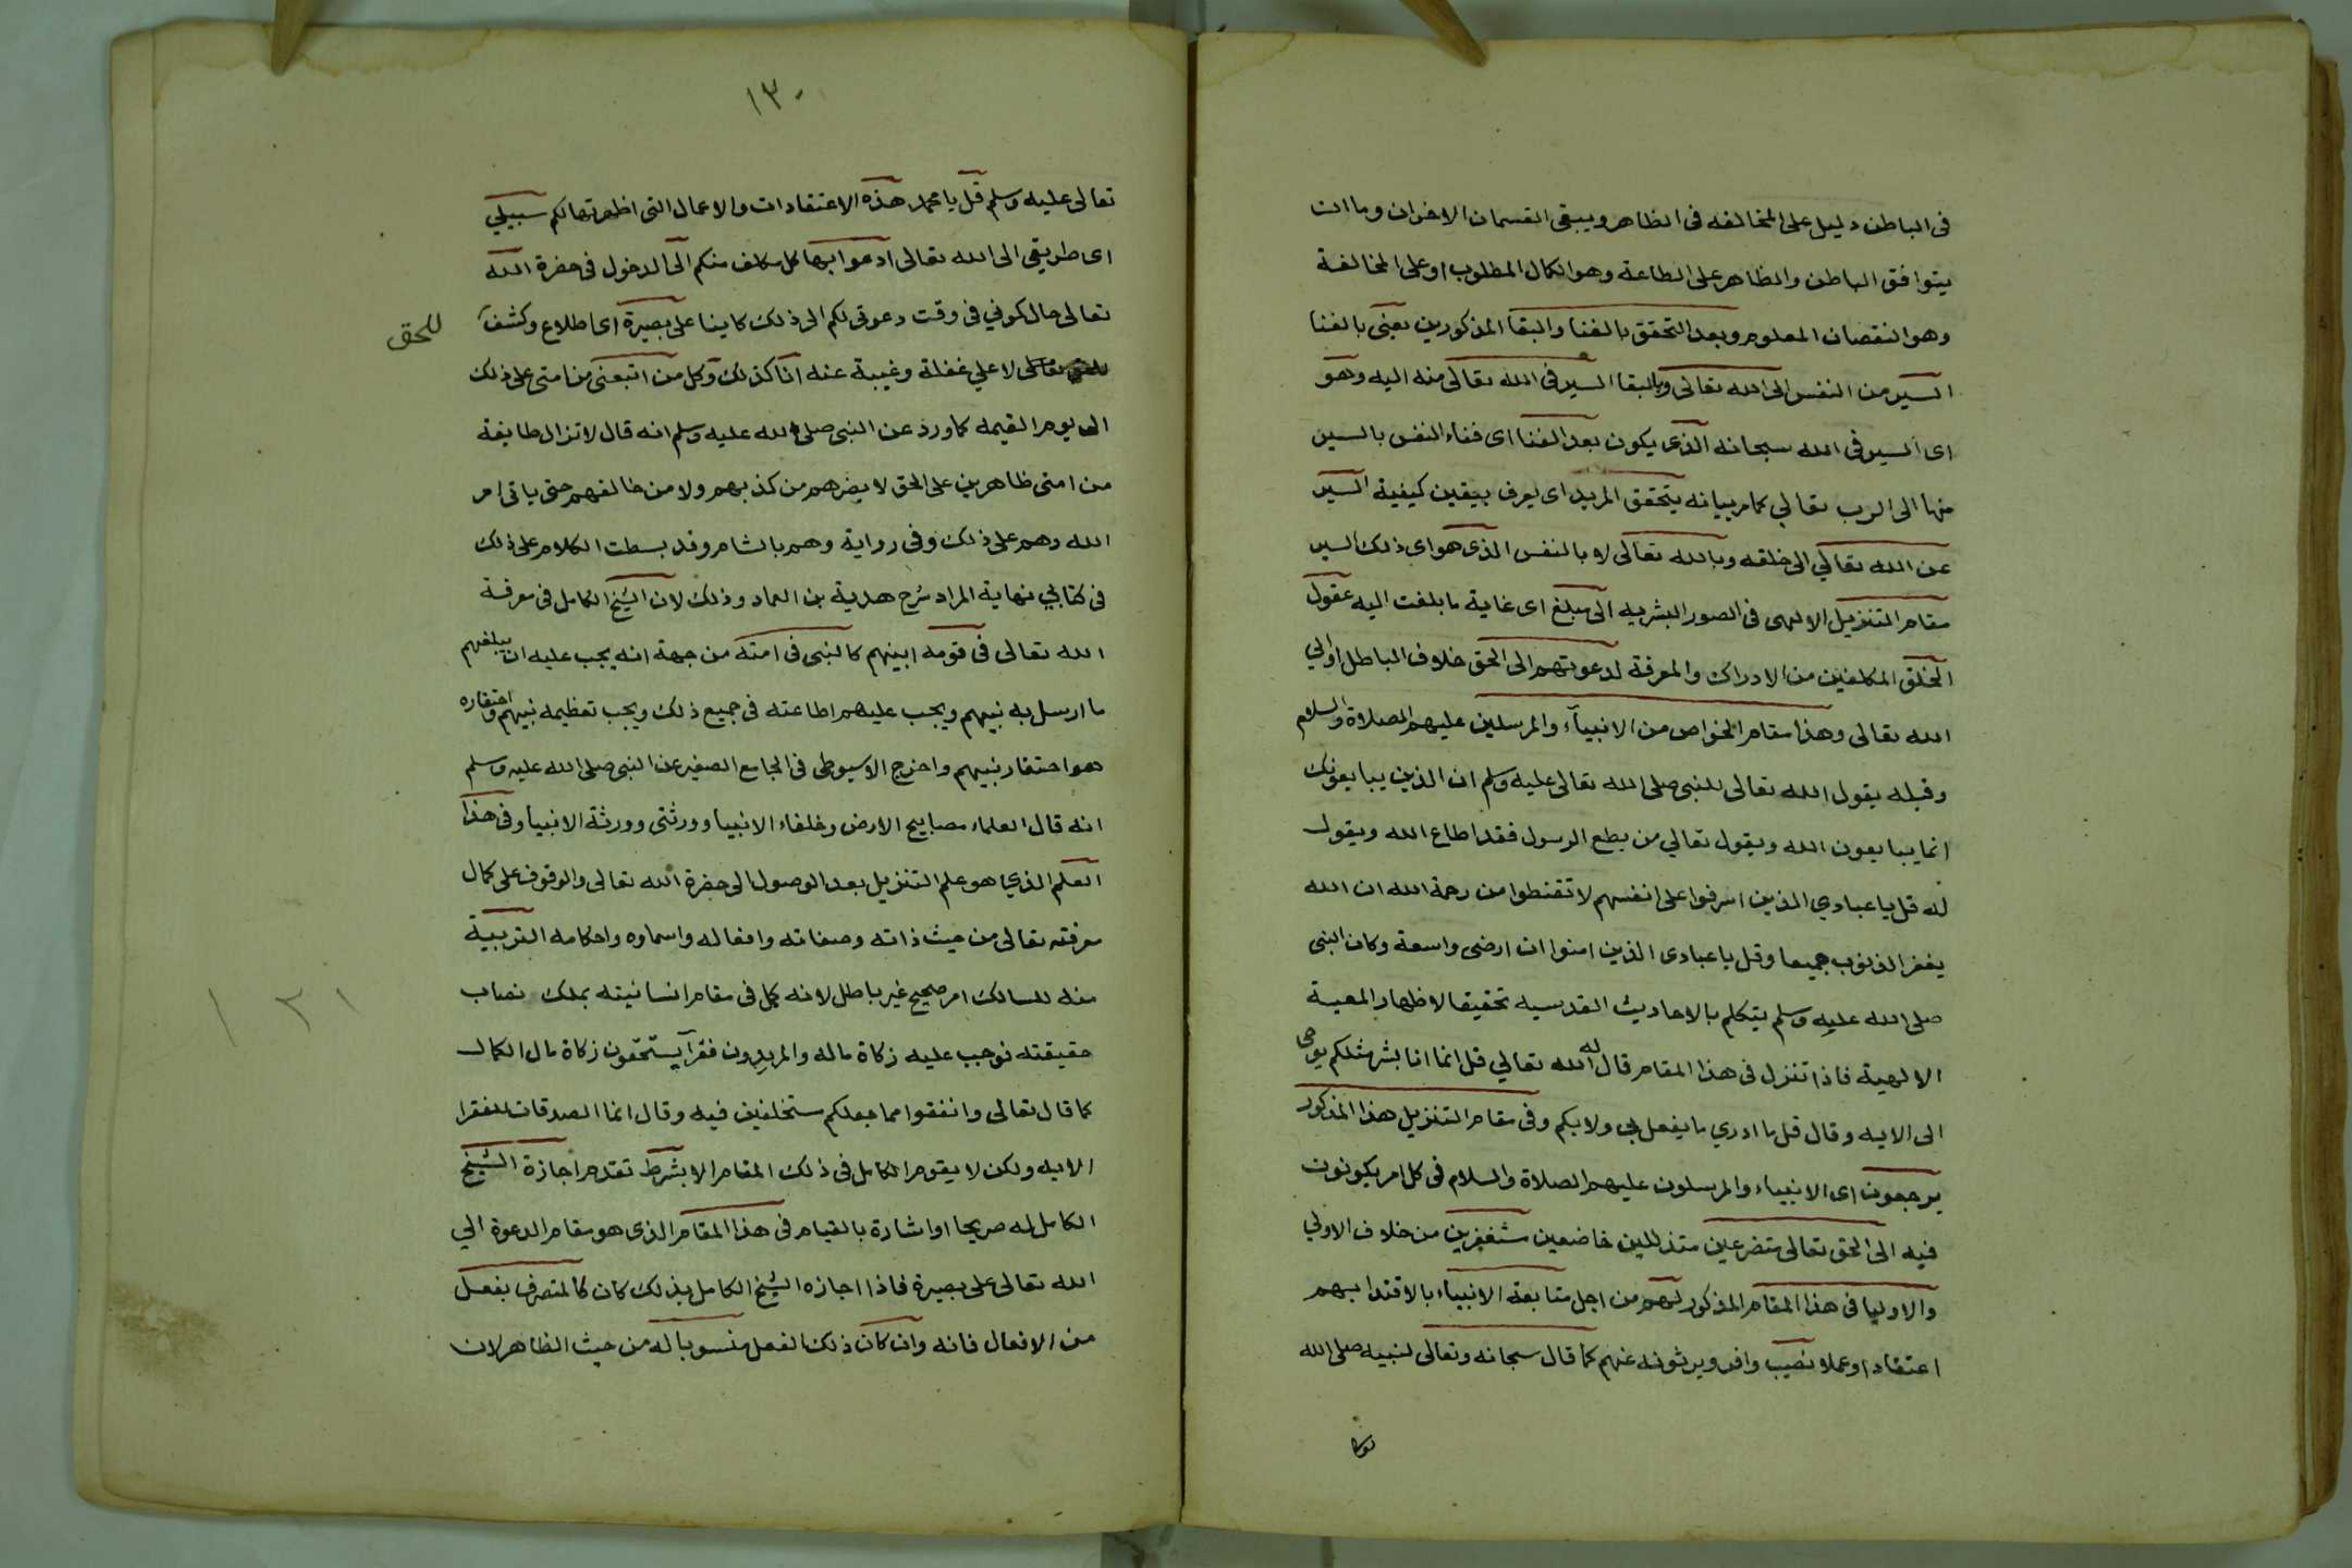 فى الباطن دليل على المخالفه فى الظاهر ويبقى القسمان الاخران وما ان
يتوافق الباطن والظاهر على الطاعة وهو الكمال المطلوب او على المخالفة
وهو النقصان المعلوم وبعد التحقق بالفنا والبقا المذكورين يعنى بالفنا
السير من النفس الى الله تعالى وبالبقا السير فى الله تعالى منه اليه وهو
اى السير فى الله سبحانه الذى يكون بعد الفنا اى فناء النفس بالسير
منها الى الرب تعالي كما مر بيانه يتحقق المريد اى يعرف بيقين كيفية السير
عن الله تعالي الى خلقه وبالله تعالى لا بالنفس الذى هو اى ذلك السير
مقام التنزيل الالهى فى الصور البشريه الى مبلغ اى غاية ما بلغت اليه عقول
الخلق المكلفين من الادراك والمعرفة لدعوتهم الى الحق خلاف الباطل اولي
الله تعالى وهذا مقام الخواص من الانبيآء والمرسلين عليهم الصلاة والسلام
وقبله يقول الله تعالى للنبى صلى الله تعالى عليه وسلم ان الذين يبايعونك
انما يبايعون الله ويقول تعالي من يطع الرسول فقد اطاع الله ويقول
له قل يا عبادي الذين اسرفوا على انفسهم لا تقنطوا من رحمة الله ان الله
يغفر الذنوب جميعا وقل يا عبادى الذين امنوا ان ارضى واسعة وكان النبى
صلى الله عليه وسلم يتكلم بالاحاديث القدسيه تحقيقا لاظهار المعية
الالهية فاذا تنزل فى هذا المقام قال له الله تعالي قل انما انا بشر مثلكم يوحى
الى الايه وقال قل ما ادري ما يفعل بى ولا بكم وفى مقام التنزيل هذا المذكور
يرجعون اى الانبياء والمرسلون عليهم الصلاة والسلام فى كل امر يكونون
فيه الى الحق تعالى متضرعين متذللين خاضعين مستغفرين من خلاف الاولي
والاوليا فى هذا المقام المذكور لهم من اجل متابعة الانبياء بالاقتدا بهم
اعتقادا وعملا نصيب وافر ويرثونه عنهم كما قال سبحانه وتعالى لنبيه صلى الله
١٣٠
تعالى عليه وسلم قل يا محمد هذه الاعتقادات والاعمال التى اظهرتها لكم سبيلي
اى طريقى الى الله تعالى ادعوا بها كل مكلف منكم الى الدخول فى حضرة الله
تعالى حال كوني فى وقت دعوتى لكم الى ذلك كاينا على بصيرة اى اطلاع وكشف
للحق
تعالى لا علي غفلة وغيبة عنه انا كذلك وكل من اتبعنى من امتى على ذلك
الى يوم القيمه كما ورد عن النبى صلى الله عليه وسلم انه قال لا تزال طايفة
من امتى ظاهرين على الحق لا يضرهم من كذبهم ولا من خالفهم حتى ياتى امر
الله وهم على ذلك وفى رواية وهم بالشام وقد بسطت الكلام على ذلك
فى كتابي نهاية المراد شرح هدية بن العماد وذلك لان الشيخ الكامل فى معرفة
الله تعالى فى قومه ابينهم كالنبى فى امته من جهة انه يجب عليه ان يبلغهم
ما ارسل به نبيهم ويجب عليهم اطاعته فى جميع ذلك ويجب تعظيمه نبيهم واحتقاره
هو احتقار نبيهم واخرج الاسيوطى فى الجامع الصغير عن النبى صلى الله عليه وسلم
انه قال العلماء مصابيح الارض وخلفاء الانبيا وورثتى وورثة الانبيا وفى هذا
العلم الذي هو علم التنزيل بعد الوصول الى حضرة الله تعالى والوقوف على كمال
معرفته تعالى من حيث ذاته وصفاته وافعاله واسماوه واحكامه التربية
منه للسالك امر صحيح غير باطل لانه كمل فى مقام انسانيته بملك نصاب
حقيقته فوجب عليه زكاة ماله والمريدون فقرآ يستحقون زكاة مال الكمال
كما قال تعالى وانفقوا مما جعلكم مستخلفين فيه وقال انما الصدقات للفقرا
الايه ولكن لا يقوم الكامل فى ذلك المقام الا بشرط تقدم اجازة الشيخ
الكامل له صريحا او اشارة بالقيام فى هذا المقام الذى هو مقام الدعوة الي
الله تعالى على بصيرة فاذا اجازه الشيخ الكامل بذلك كان كالمتصرف بفعل
من الافعال فانه وان كان ذلك الفعل منسوبا له من حيث الظاهر لان
١٣١